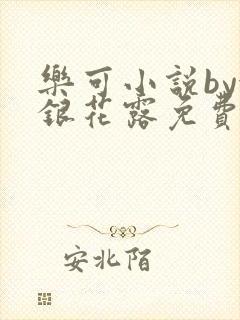 樂可小説by
銀花露免費
安北陌